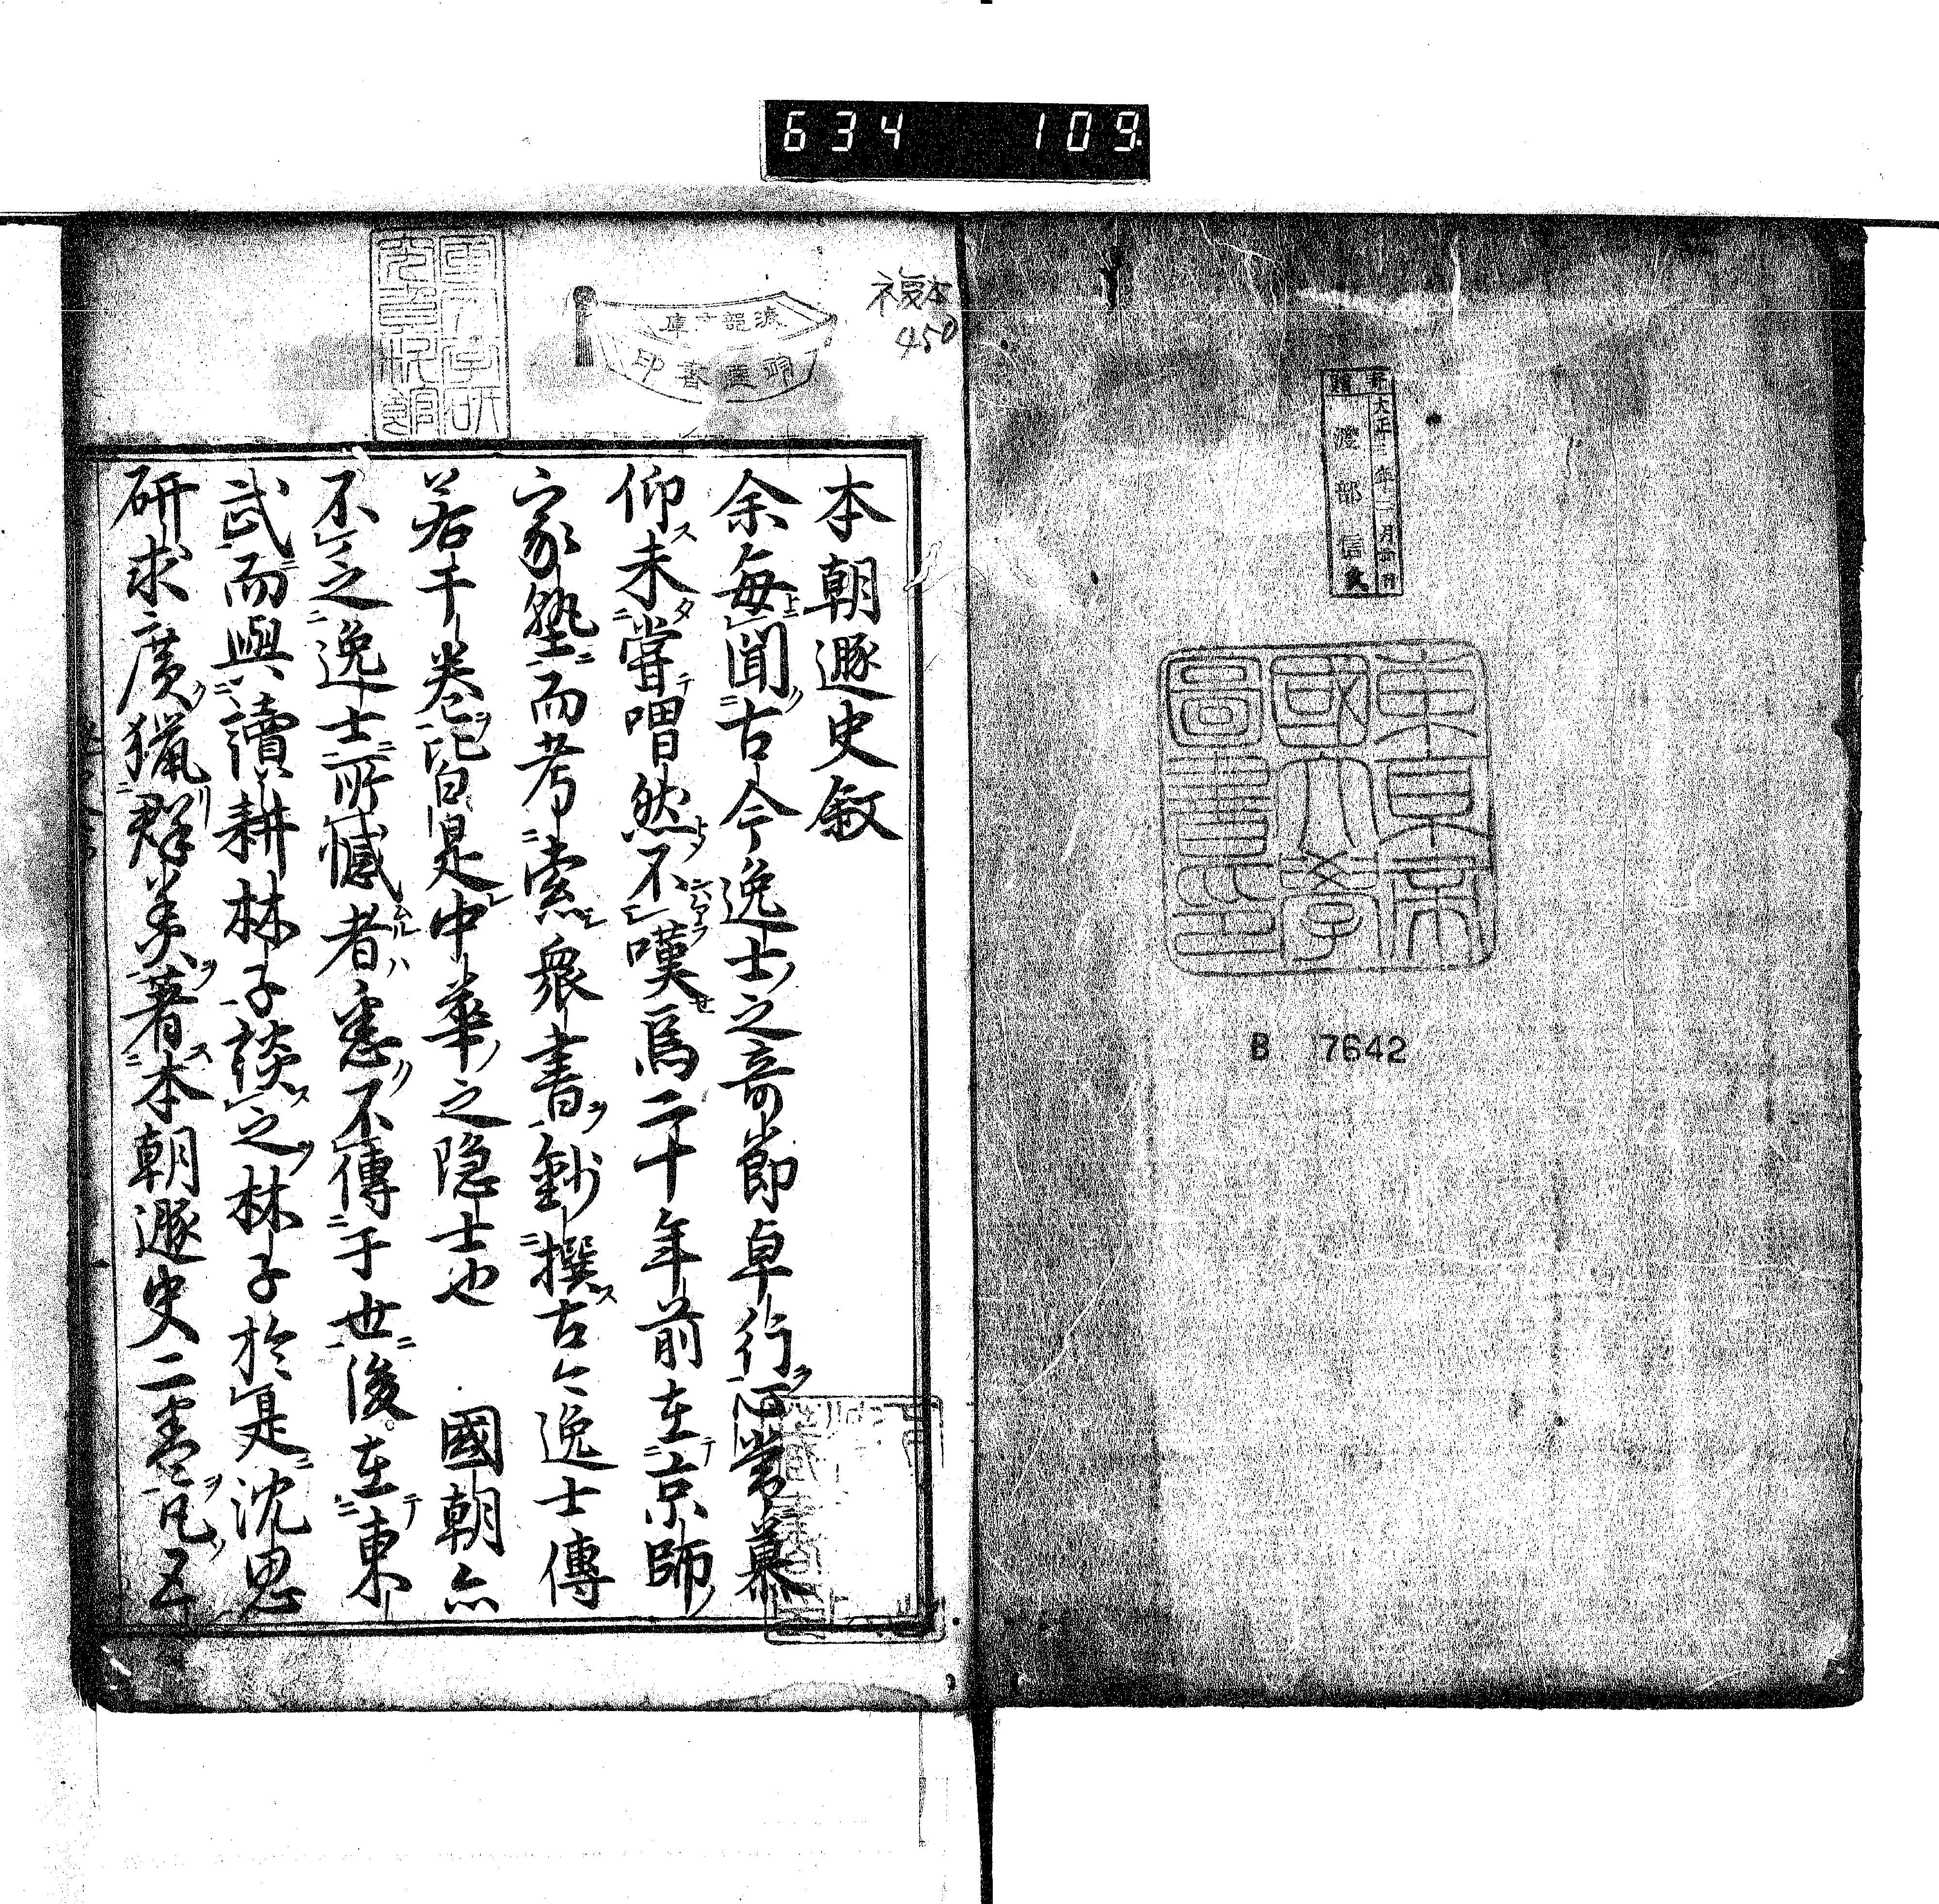 634 109
大正三年三月
渡部信
東京帝
國大學
圖書印
B 7642
複本
450
本朝遯史叙
余每聞古今逸士之奇節卓行心常慕
仰未嘗喟然不嘆焉二十年前在京師
家塾而考索衆書鈔撰古今逸士傳
若干卷記皆是中華之隠士也 國朝亦
不乏逸士所憾者悉不傳于世後在東
武而與讀耕林子談之林子於是沈思
研求廣猟群美著本朝遯史二卷凡五